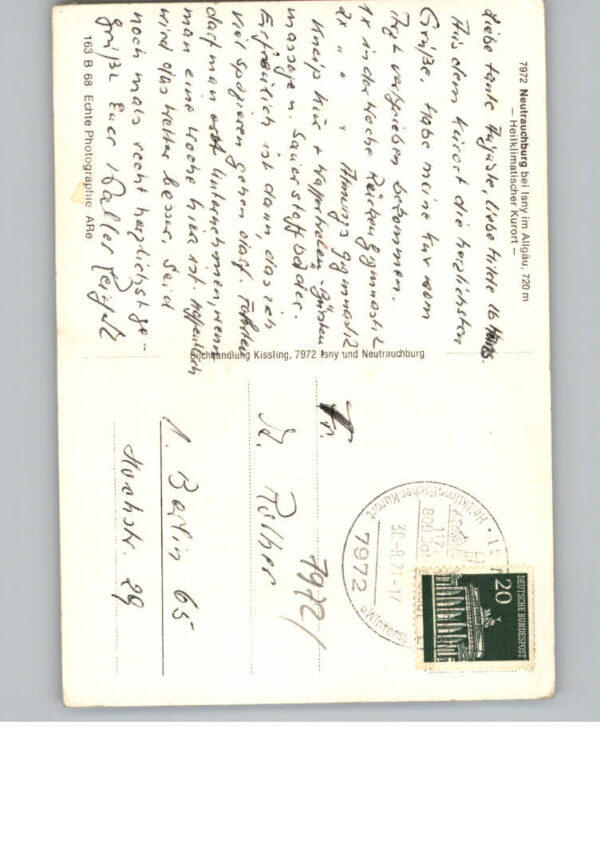 7972 Neutrauchburg bei Isny im Allgäu, 720 m
– Heilklimatischer Kurort –
Liebe Tante Auguste, liebe Hilde
Aus dem Kurort die herzlichsten
Grüße. Habe meine Kur vom
Arzt verschrieben bekommen.
1x in der Woche Rückengymnastik
2x " " " Atmungsgymnastik
Kneip Kur +
massagen. Sauerstoffbäder.
Erfreulich ist dann, das ich
viel spazieren gehen darf.
darf man erst unternehmen, wenn
man eine Woche hier ist. Hoffentlich
wird das Wetter besser. Seid
noch mals recht herzlichst ge-
grüßt Euer
163 B 68 Echte Photographie ARe
Buchhandlung Kissling, 7972 Isny und Neutrauchburg
Fr.
A. Röther
1. Berlin 65
Nr. 29
7972/
Heilklimatischer Kurort
30.-8.71-17
7972
DEUTSCHE BUNDESPOST
20